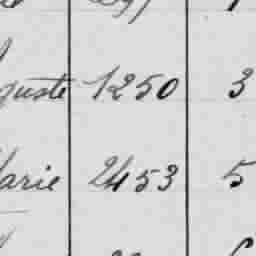 guste 1250 3
arie 2453 5